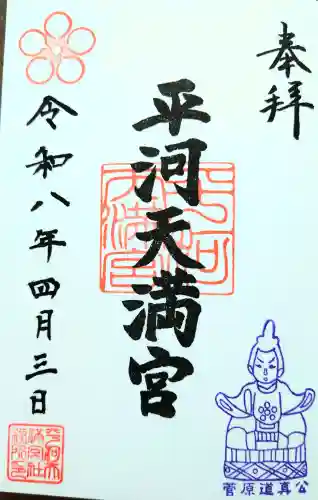 奉拝
平河天満宮
令和八年四月三日
菅原道真公
平河天満宮